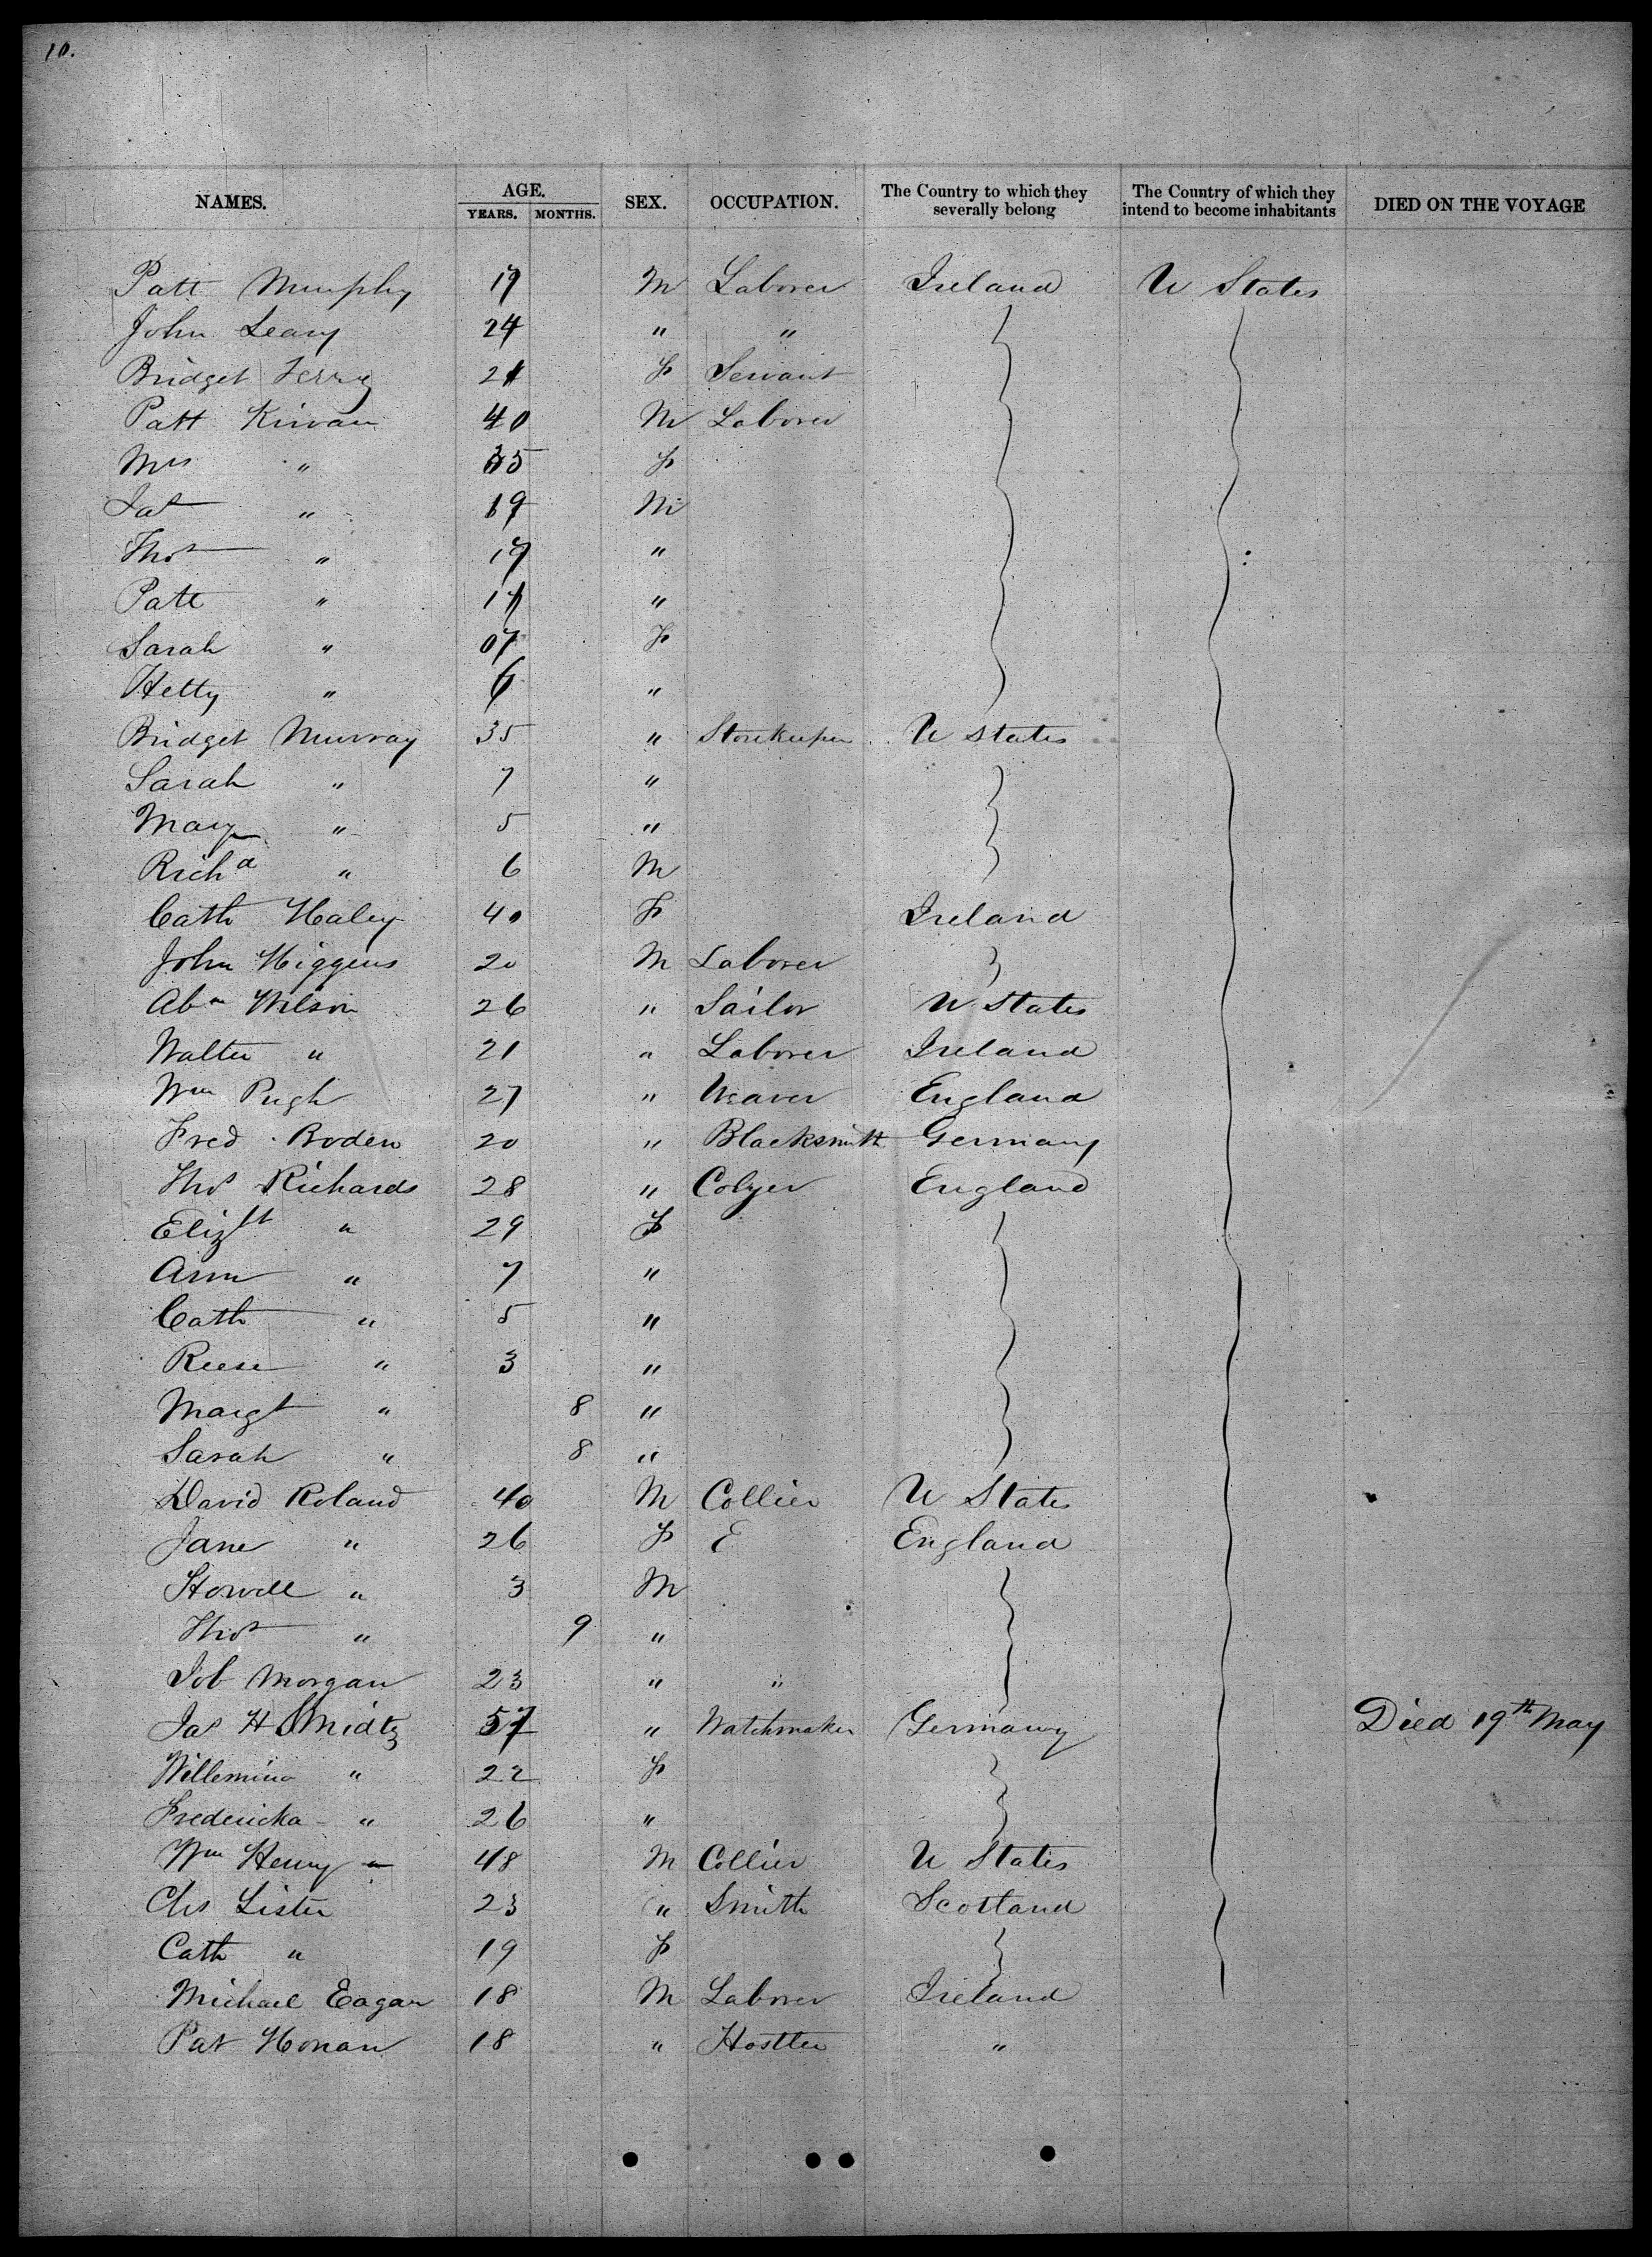 10.
NAMES. AGE. YEARS. MONTHS. SEX. OCCUPATION. The Country to which they severally belong The Country of which they intend to become inhabitants DIED ON THE VOYAGE
Patt Murphy 19 M Laborer Ireland U States
John Leary 24 " "
Bridget Terry 21 F Servant
Patt Kirvan 40 M Laborer
Mrs " 35 F
Jas " 19 M
Thos " 17 "
Patt " "
Sarah " 07 F
Hetty " 6 "
Bridget Murray 35 " Storekeeper U States
Sarah " 7 "
Mary " 5 "
Richd " 6 M
Cath Haley 40 F Ireland
John Higgens 20 M Laborer
Abm Wilson 26 " Sailor U States
Walter " 21 " Laborer Ireland
Wm Pugh 27 " Weaver England
Fred Boden 20 " Blacksmith Germany
Thos Richards 28 " Colyer England
Elizth " 29 F
Ann " 7 "
Cath " 5 "
Reese " 3 "
Margt " 8 "
Sarah " 8 "
David Roland 40 M Collier U States
Jane " 26 F E England
" 3 M
Thos " 9 "
Job Morgan 23 " "
Jas H Smidtz 57 " Watchmaker Germany Died 19th May
Willemina " 22 F
Fredericka " 26 "
Wm Henry " 48 M Collier U States
Chs Lister 23 " Smith Scotland
Cath " 19 F
Michael Eagan 18 M Laborer Ireland
Pat Honan 18 " Hostler "